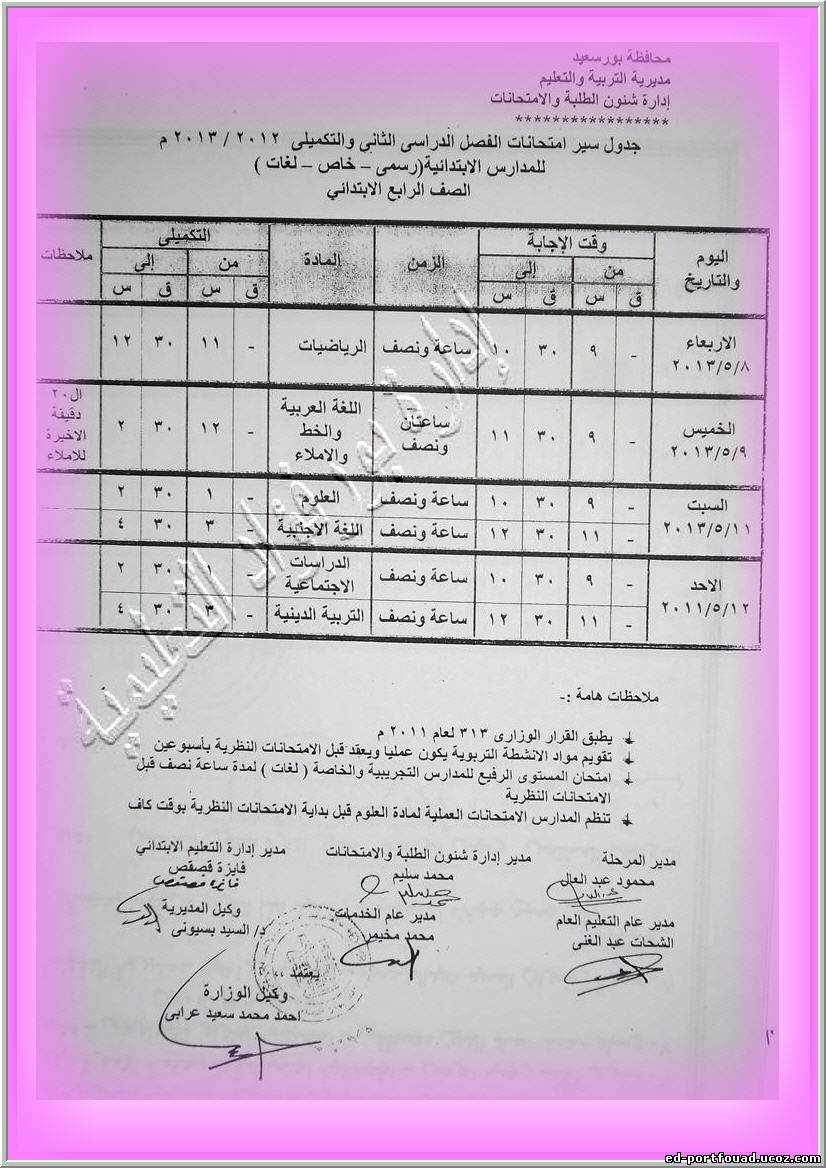 محافظة بورسعيد
مديرية التربية والتعليم
إدارة شئون الطلبة والامتحانات
*****************
جدول سير امتحانات الفصل الدراسى الثانى والتكميلى ٢٠١٢ / ٢٠١٣ م
للمدارس الابتدائية(رسمى – خاص – لغات )
الصف الرابع الابتدائي
اليوم والتاريخ وقت الإجابة الزمن المادة التكميلى ملاحظات
من إلى من إلى
ق س ق س ق س ق س
الاربعاء ٢٠١٣/٥/٨ - ٩ ٣٠ ١٠ ساعة ونصف الرياضيات - ١١ ٣٠ ١٢
الخميس ٢٠١٣/٥/٩ - ٩ ٣٠ ١١ ساعتان ونصف اللغة العربية والخط والاملاء - ١٢ ٣٠ ٢ ال٢٠ دقيقة الاخيرة للاملاء
السبت ٢٠١٣/٥/١١ - ٩ ٣٠ ١٠ ساعة ونصف العلوم - ١ ٣٠ ٢
- ١١ ٣٠ ١٢ ساعة ونصف اللغة الاجنبية - ٣ ٣٠ ٤
الاحد ٢٠١١/٥/١٢ - ٩ ٣٠ ١٠ ساعة ونصف الدراسات الاجتماعية - ١ ٣٠ ٢
- ١١ ٣٠ ١٢ ساعة ونصف التربية الدينية - ٣ ٣٠ ٤
إدارة بورفؤاد التعليمية
ملاحظات هامة :-
يطبق القرار الوزارى ٣١٣ لعام ٢٠١١ م
تقويم مواد الانشطة التربوية يكون عمليا ويعقد قبل الامتحانات النظرية بأسبوعين
امتحان المستوى الرفيع للمدارس التجريبية والخاصة ( لغات ) لمدة ساعة نصف قبل
الامتحانات النظرية
تنظم المدارس الامتحانات العملية لمادة العلوم قبل بداية الامتحانات النظرية بوقت كاف
مدير المرحلة مدير إدارة شئون الطلبة والامتحانات مدير إدارة التعليم الابتدائي
محمود عبد العال محمد سليم فايزة قصقص
فايزة قصقص
مدير عام التعليم العام مدير عام الخدمات وكيل المديرية
الشحات عبد الغنى محمد مخيمر د/ السيد بسيونى
يعتمد ،،
وكيل الوزارة
احمد محمد سعيد عرابى
ed-portfouad.ucoz.com